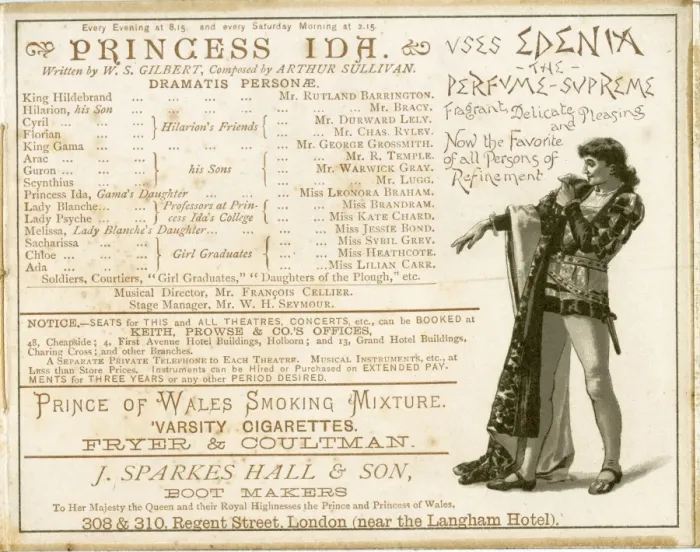 Every Evening at 8.15. and every Saturday Morning at 2.15.
PRINCESS IDA.
Written by W. S. GILBERT, Composed by ARTHUR SULLIVAN.
DRAMATIS PERSONÆ.
King Hildebrand ... ... ... ... Mr. RUTLAND BARRINGTON.
Hilarion, his Son ... ... ... ... Mr. BRACY.
Cyril ... ... ... } Hilarion's Friends { ... ... Mr. DURWARD LELY.
Florian ... ... ... Mr. CHAS. RYLEY.
King Gama ... ... ... ... Mr. GEORGE GROSSMITH.
Arac ... ... ... Mr. R. TEMPLE.
Guron ... ... } his Sons { ... Mr. WARWICK GRAY.
Scynthius ... ... ... Mr. LUGG.
Princess Ida, Gama's Daughter ... ... ... Miss LEONORA BRAHAM.
Lady Blanche... ... } Professors at Prin- { ... ... Miss BRANDRAM.
Lady Psyche ... ... } cess Ida's College { ... ... Miss KATE CHARD.
Melissa, Lady Blanche's Daughter... ... ... Miss JESSIE BOND.
Sacharissa ... ... ... ... Miss SYBIL GREY.
Chloe ... ... ... } Girl Graduates { ... ... Miss HEATHCOTE.
Ada ... ... ... ... ...Miss LILIAN CARR.
Soldiers, Courtiers, "Girl Graduates," "Daughters of the Plough," etc.
Musical Director, Mr. FRANÇOIS CELLIER.
Stage Manager, Mr. W. H. SEYMOUR.
NOTICE.—SEATS for THIS and ALL THEATRES, CONCERTS, etc., can be BOOKED at
KEITH, PROWSE & CO.'S OFFICES,
48, Cheapside; 4, First Avenue Hotel Buildings, Holborn; and 13, Grand Hotel Buildings,
Charing Cross; and other Branches.
A SEPARATE PRIVATE TELEPHONE TO EACH THEATRE. MUSICAL INSTRUMENTS, etc., at
LESS than STORE PRICES. Instruments can be Hired or Purchased on EXTENDED PAY-
MENTS for THREE YEARS or any other PERIOD DESIRED.
PRINCE OF WALES SMOKING MIXTURE.
'VARSITY CIGARETTES.
FRYER & COULTMAN.
J. SPARKES HALL & SON,
BOOT MAKERS
To Her Majesty the Queen and their Royal Highnesses the Prince and Princess of Wales,
308 & 310, Regent Street, London (near the Langham Hotel).
USES EDENIA
-THE-
PERFUME-SUPREME
Fragrant, Delicate
and Pleasing
Now the Favorite
of all Persons of
Refinement